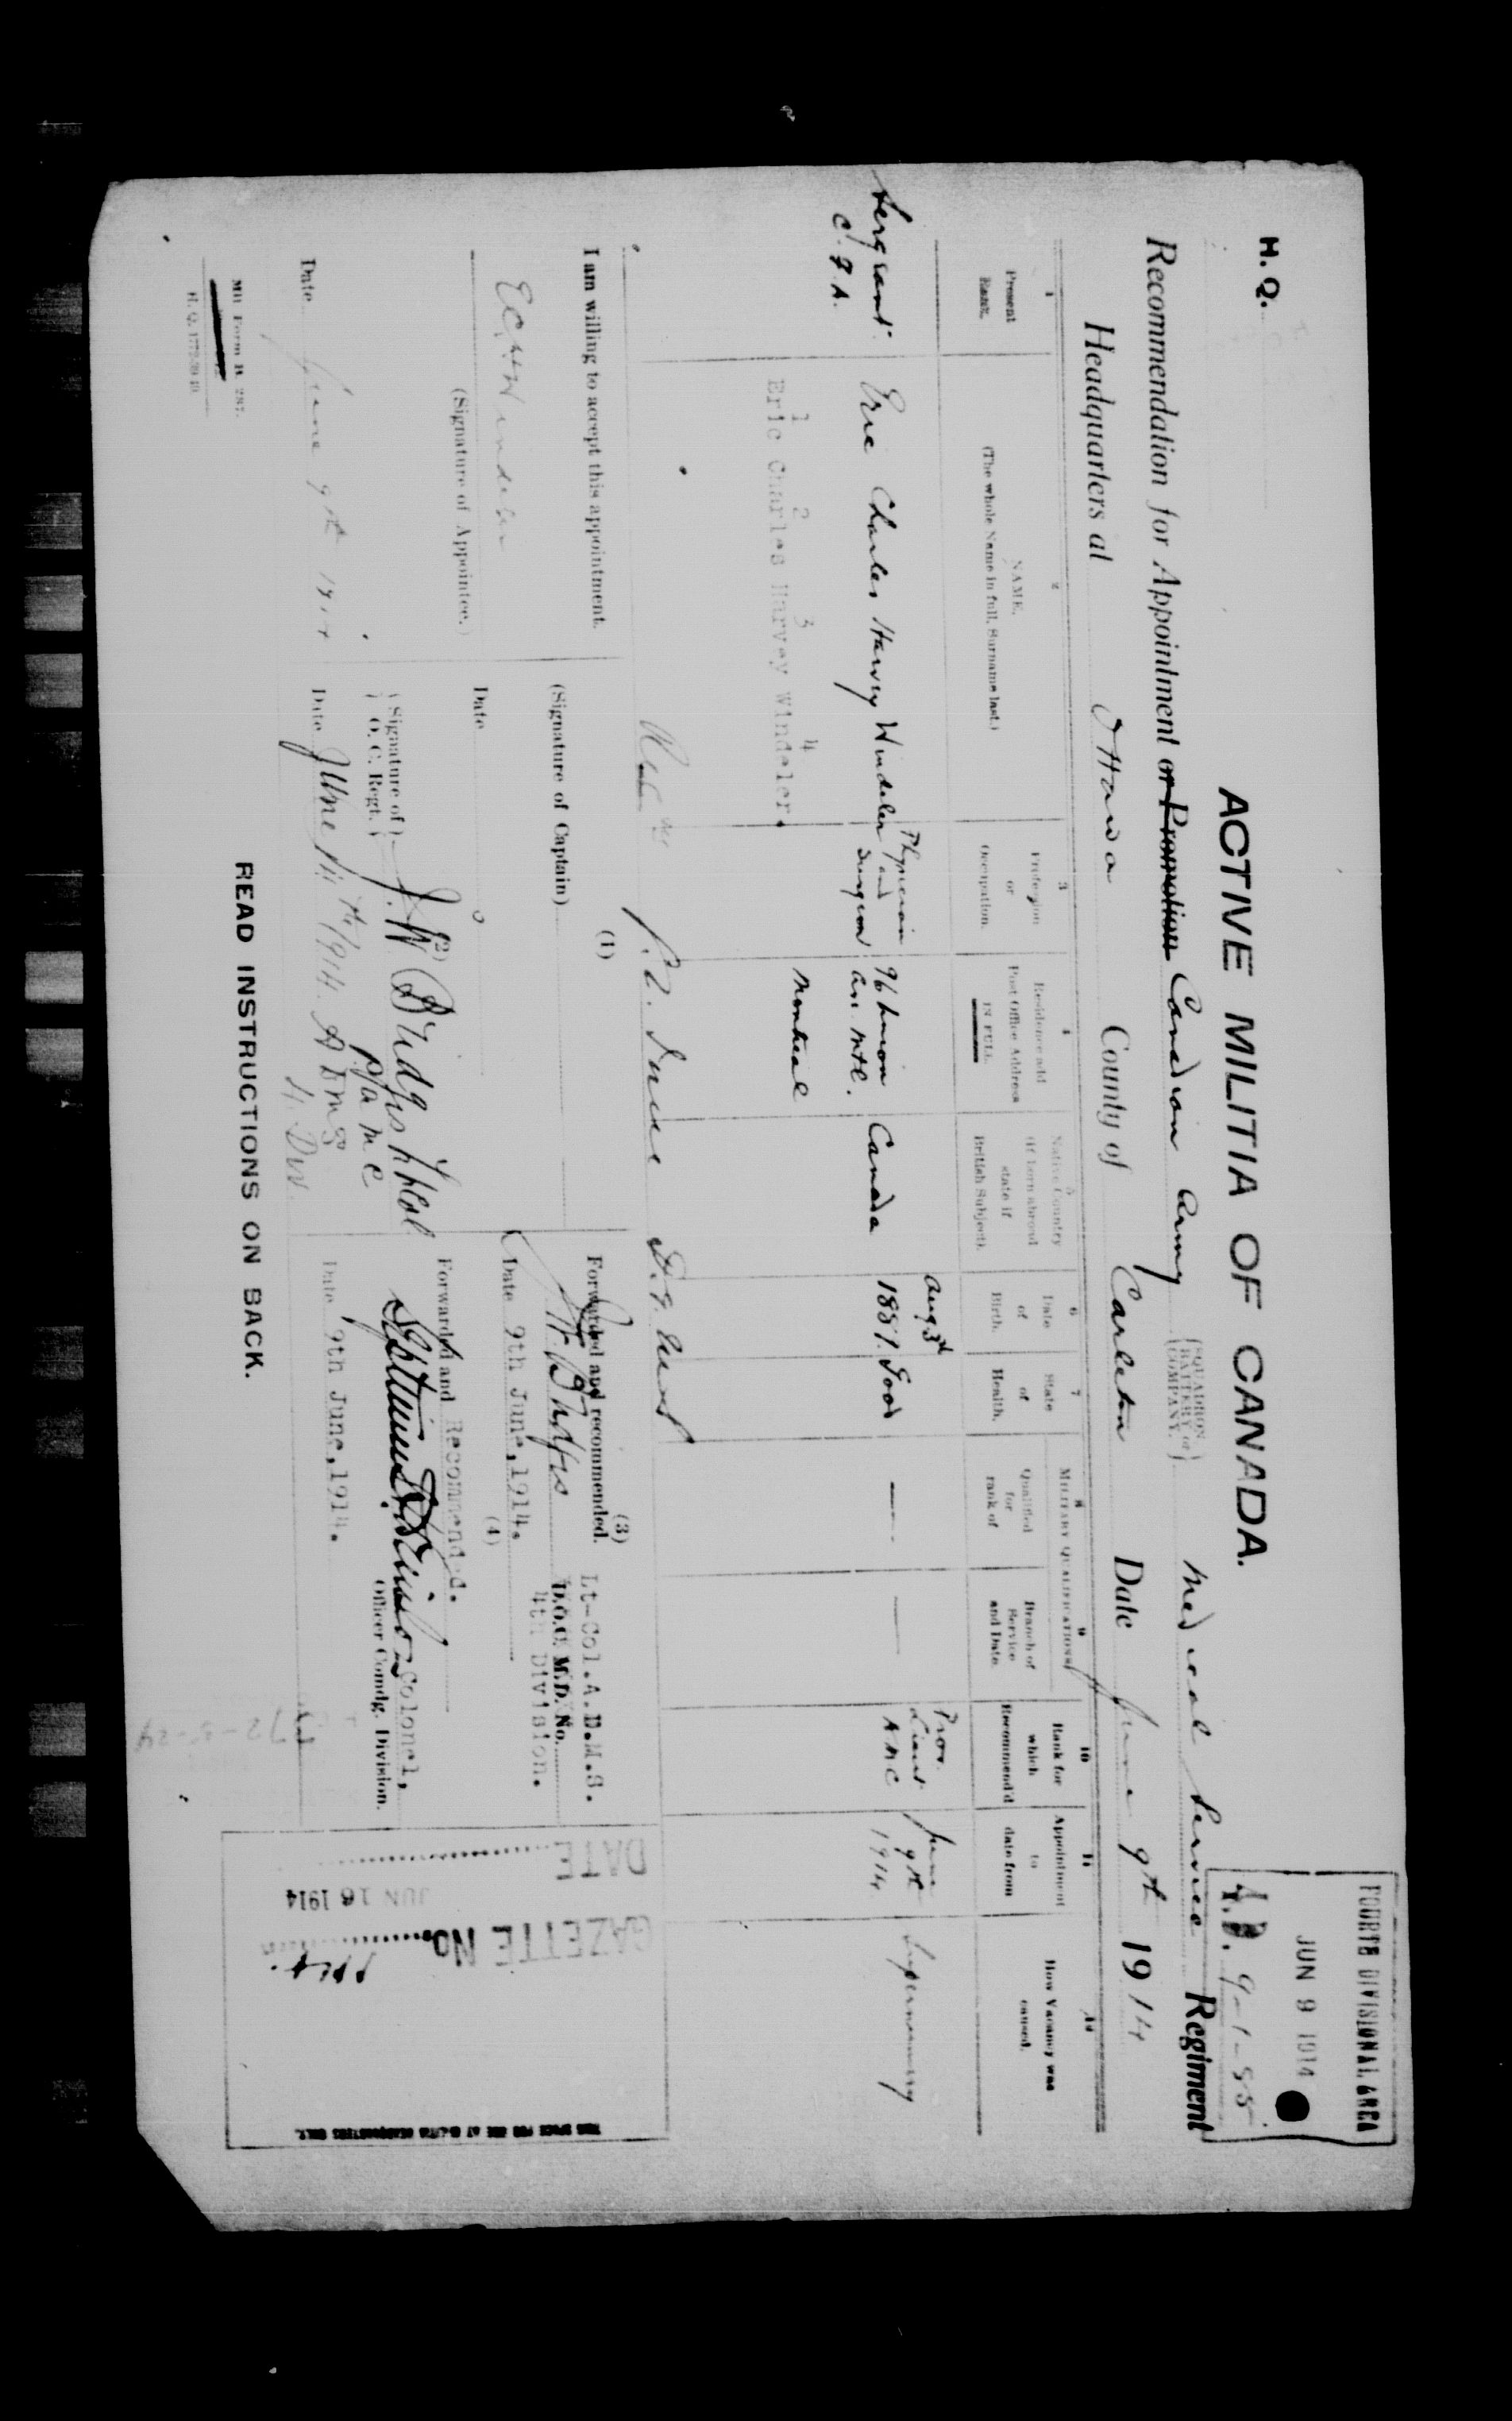 H. Q.
ACTIVE MILITIA OF CANADA.
FOURTH DIVISIONAL AREA
JUN 9 1914
4.D. 9-1-55
Recommendation for Appointment or Promotion Canadian Army {SQUADRON BATTERY or COMPANY.} Medical Service Regiment
Headquarters at Ottawa County of Carleton Date June 9th 1914
1 Present Rank.
2 NAME. (The whole Name in full, Surname last.)
3 Profession or Occupation.
4 Residence and Post Office Address IN FULL.
5 Native Country (if born abroad state if British Subject).
6 Date of Birth.
7 State of Health.
MILITARY QUALIFICATIONS
8 Qualified for rank of
9 Branch of Service and Date.
10 Rank for which Recommend'd
11 Appointment to date from
12 How Vacancy was caused.
Sergeant C.F.A.
Eric Charles Harvey Windeler
Physician and Surgeon
96 Union Av. Mtl.
Montreal
Canada
Aug 3d 1887.
Good
—
—
Prov. Lieut A M C
June 9th 1914
Supernumerary
1 2 3 4
Eric Charles Harvey Windeler.
I am willing to accept this appointment.
E C H Windeler
(Signature of Appointee.)
Date June 9th 1914
(1)
(Signature of Captain)
Date
(2)
{Signature of O. C. Regt.} J. W. Bridges Lt Col
P A M C
Date June 9th 1914. A D M S
4. Div.
(3)
Forwarded and recommended.
Lt-Col.A.D.M.S.
D.O.C. M.D. No.
4th Division.
Date 9th June, 1914.
(4)
Forwarded and Recommended.
Colonel,
Officer Comdg. Division.
Date 9th June, 1914.
DATE
JUN 16 1914
GAZETTE No.
THIS SPACE FOR USE AT MILITIA HEADQUARTERS ONLY.
Mil Form B. 287.
READ INSTRUCTIONS ON BACK.